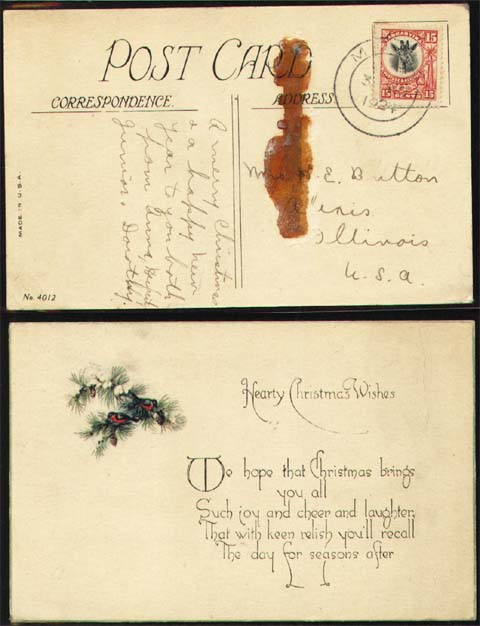 POST CARD
CORRESPONDENCE.
ADDRESS.
TANGANYIKA
15
15 15
1924
A merry Christmas
& a happy new
year to you both
from Anna, David
Junior & Dorothy.
Mrs E. Button
Illinois
U.S.A.
MADE IN U.S.A.
No. 4012
Hearty Christmas Wishes
We hope that Christmas brings
you all
Such joy and cheer and laughter,
That with keen relish you'll recall
The day for seasons after